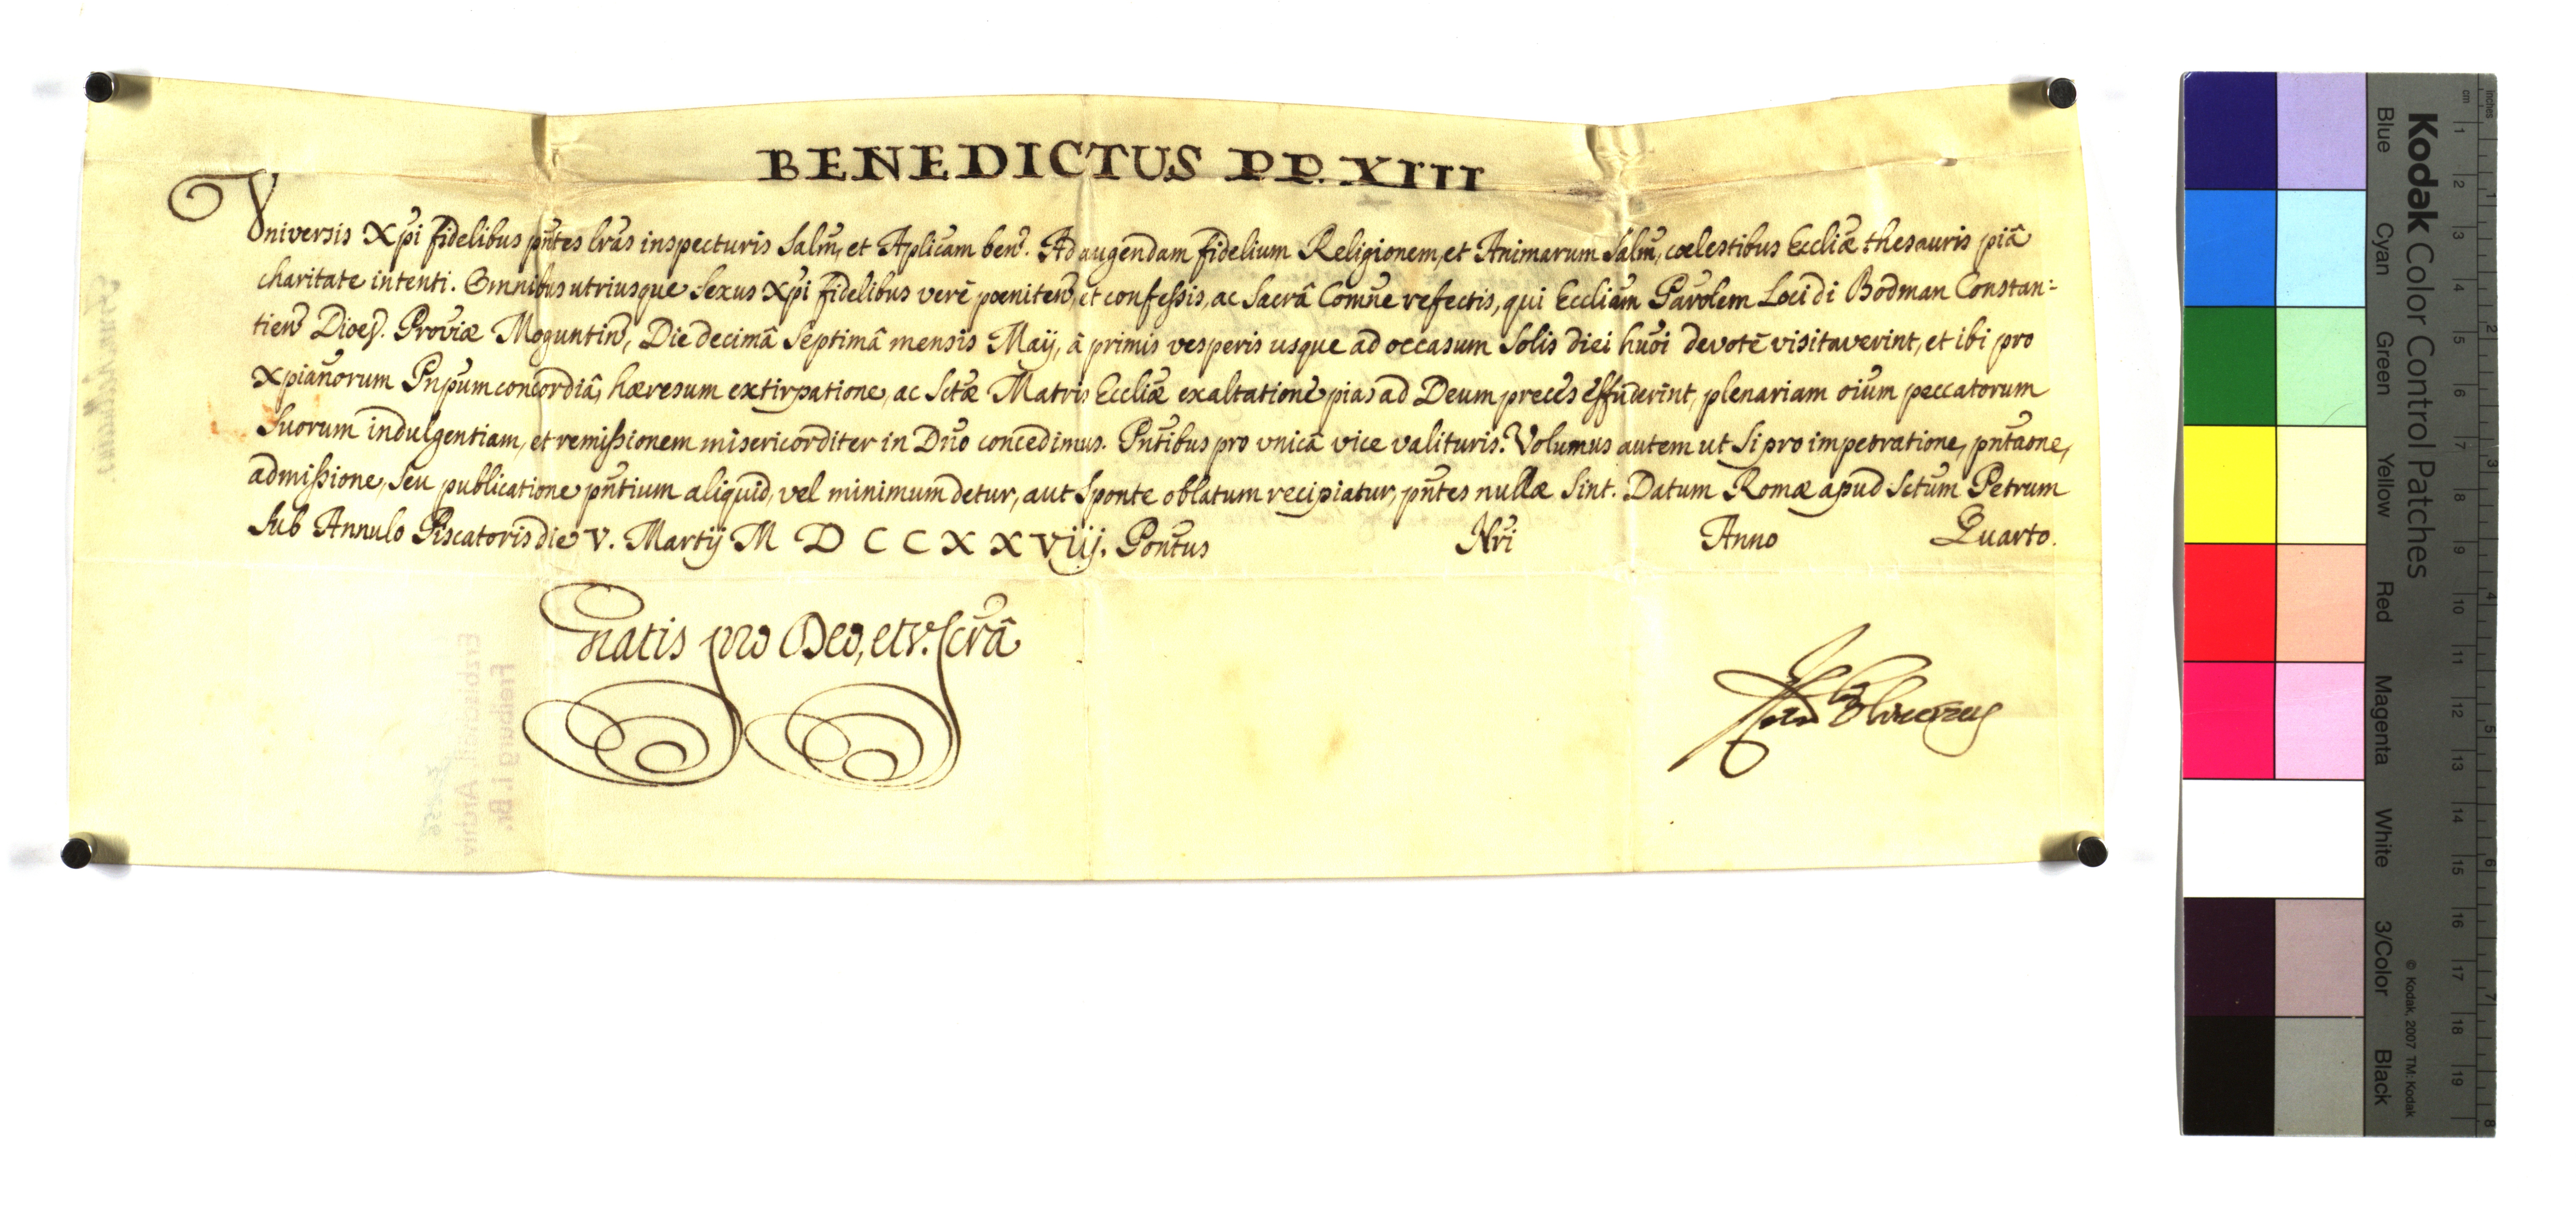 BENEDICTUS PP. XIII
Vniversis Xp̄i fidelibus pn̄tes lr̄as inspecturis Salm̄, et Ap̄licam ben. Ad augendam fidelium Religionem, et Animarum Salm̄, cœlestibus Eccliǣ thesauris piâ
charitate intenti. Omnibus utriusque Sexus Xp̄i fidelibus verè pœniten, et confessis, ac Sacrâ Comūne refectis, qui Eccliām Parōlem Loci di Bodman Constan-
tien Dioeſ. Proviæ Moguntin, Die decimâ Septimâ mensis Maÿ, â primis vesperis usque ad occasum Solis diei hūoi devotè visitaverint, et ibi pro
Xpianōrum Pnp̄um concordiâ, hæresum extirpatione, ac Sctǣ Matris Eccliǣ exaltatione pias ad Deum preces effuderint, plenariam oīum peccatorum
Suorum indulgentiam, et remissionem misericorditer in Dn̄o concedimus. Pn̄tibus pro vnicâ vice valituris. Volumus autem ut Si pro impetratione, pn̄taōne,
admissione, Seu publicatione pn̄tium aliquid, vel minimum detur, aut Sponte oblatum recipiatur, pn̄tes nullæ Sint. Datum Romæ apud Sctūm Petrum
Sub Annulo Piscatoris die V. Martÿ M D C C X X V iij. Pontūs Nr̄i Anno Quarto.
Gratis pro Deo, et v. scr̄a
Erzbischöfl. Archiv
Freiburg i. Br.
Kodak Color Control Patches
Blue Cyan Green Yellow Red Magenta White 3/Color Black
© Kodak, 2007 TM: Kodak
inches 1 2 3 4 5 6 7 8
cm 1 2 3 4 5 6 7 8 9 10 11 12 13 14 15 16 17 18 19